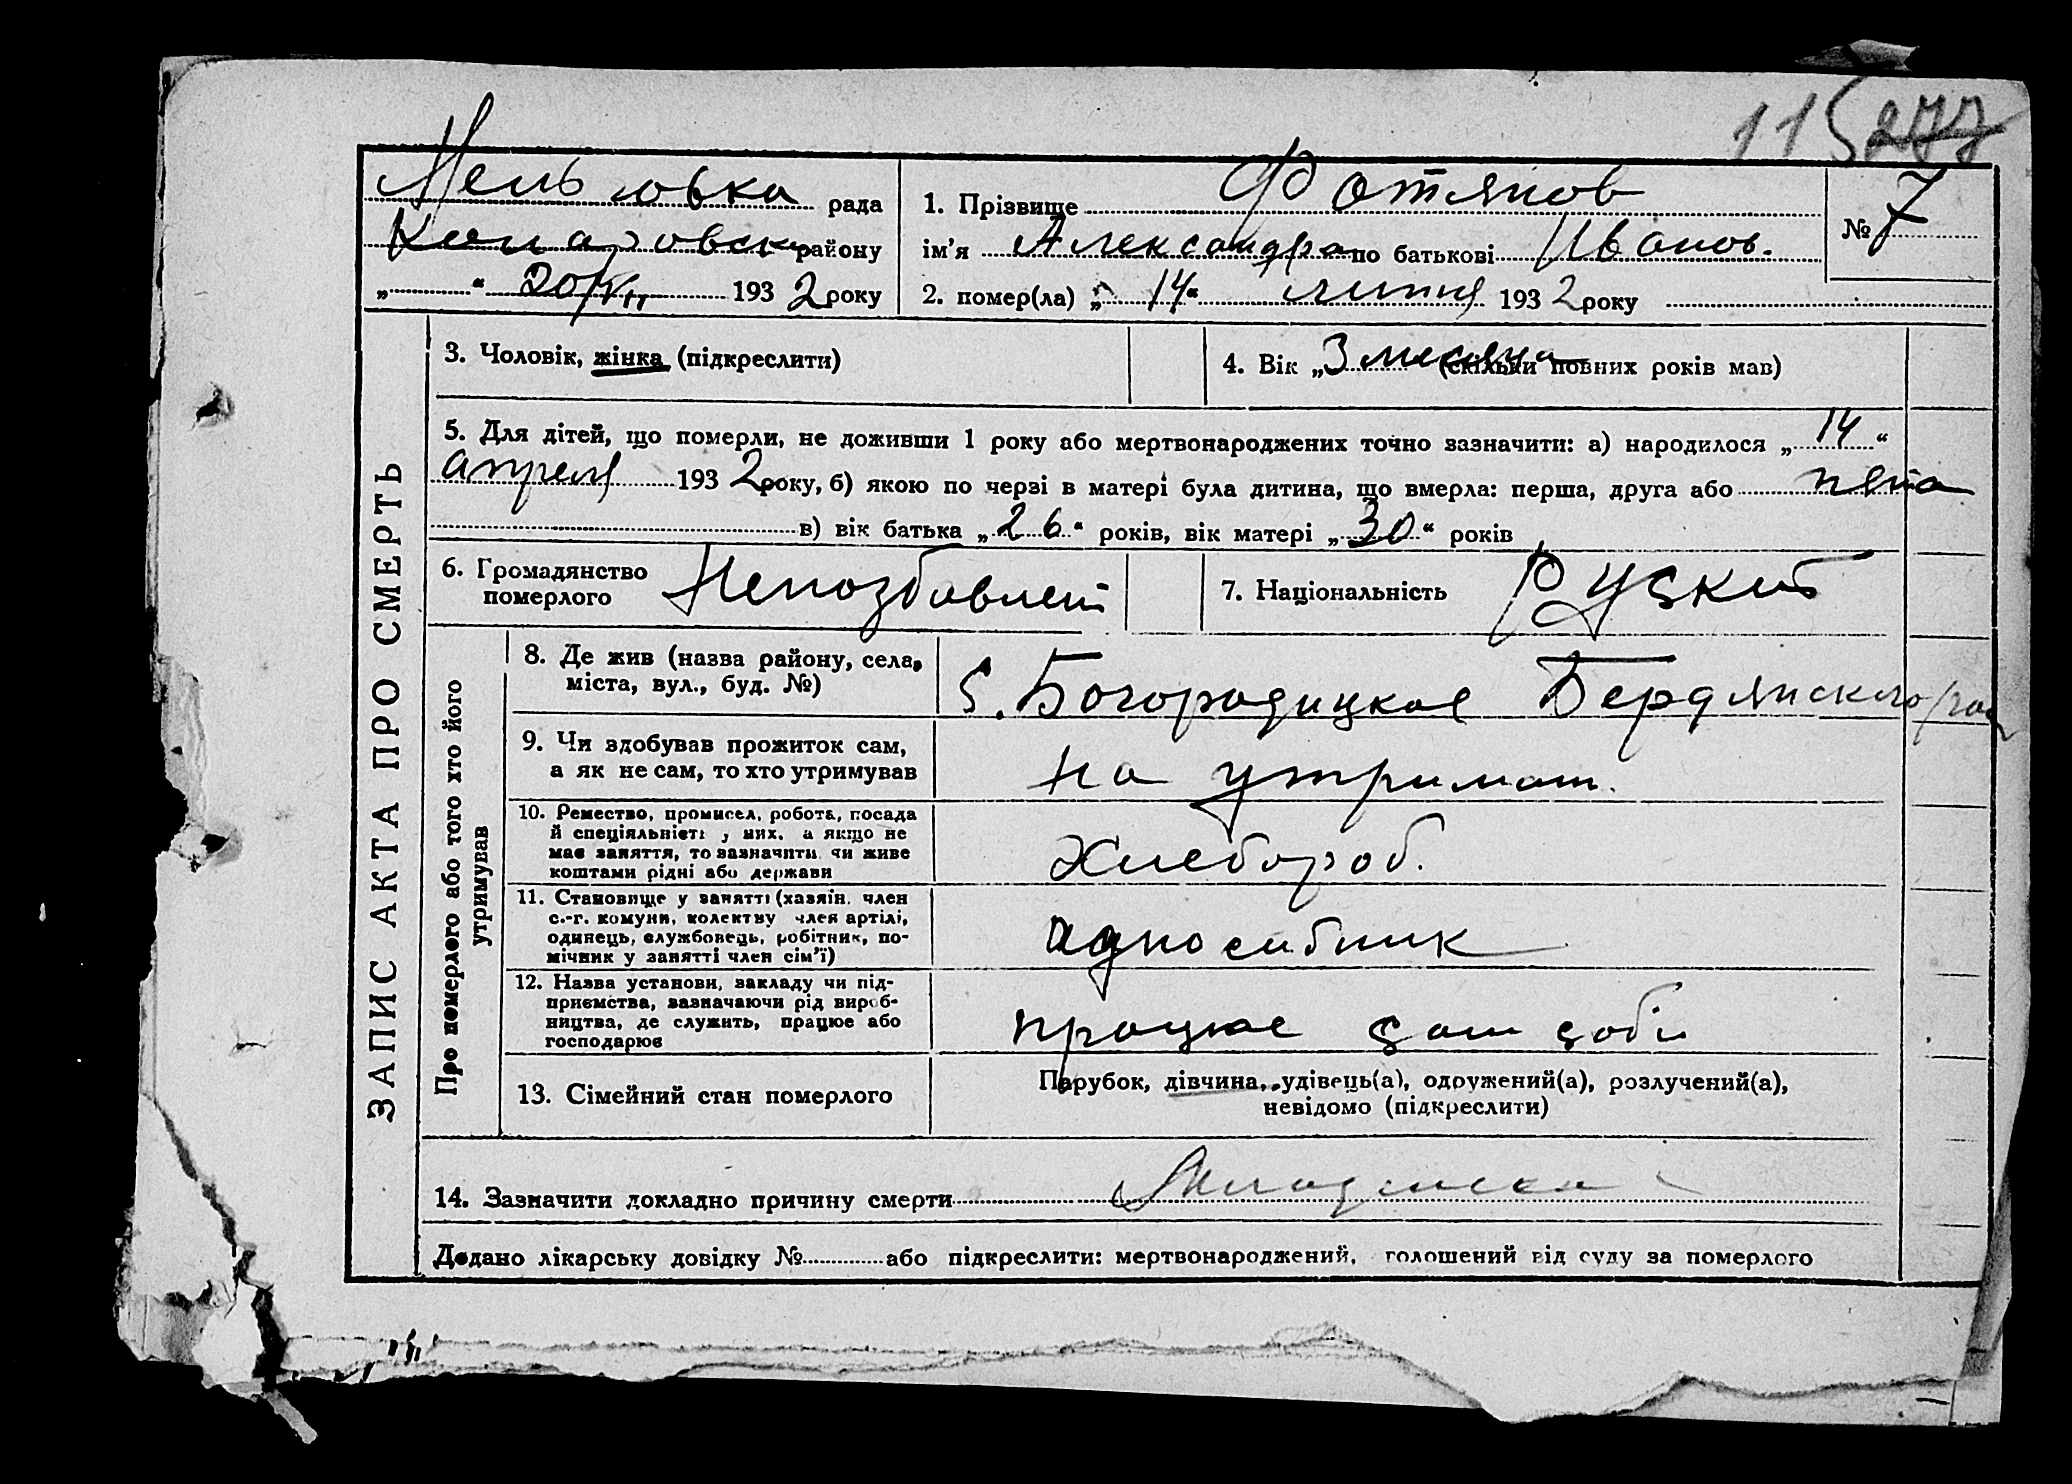 115 277
рада
1. Прізвище Фотянов
№ 7
району
ім'я Александра по батькові Иванов.
„ “ 20/VII 1932 року
2. помер(ла) „14“ липня 1932 року
ЗАПИС АКТА ПРО СМЕРТЬ
3. Чоловік, жінка (підкреслити)
4. Вік „3 месяца (скільки повних років мав)
5. Для дітей, що померли, не доживши 1 року або мертвонароджених точно зазначити: а) народилося „14“
апреля 1932 року, б) якою по черзі в матері була дитина, що вмерла: перша, друга або пята
в) вік батька „26“ років, вік матері „30“ років
6. Громадянство
померлого
Непозбавлен
7. Національність Руский
Про померлого або того хто його
утримував
8. Де жив (назва району, села,
міста, вул., буд. №)
с. Богородицкое Бердянского
9. Чи здобував прожиток сам,
а як не сам, то хто утримував
на утриман.
10. Ремество, промисел, робота, посада
й спеціяльність у них, а якщо не
має заняття, то зазначити, чи живе
коштами рідні або держави
Хлебороб.
11. Становище у занятті (хазяїн, член
с.-г. комуни, колективу член артілі,
одинець, службовець, робітник, по-
мічник у занятті член сім'ї)
односибник
12. Назва установи, закладу чи під-
приємства, зазначаючи рід вироб-
ництва, де служить, працює або
господарює
працює сам собі
13. Сімейний стан померлого
Парубок, дівчина, удівець(а), одружений(а), розлучений(а),
невідомо (підкреслити)
14. Зазначити докладно причину смерти
Додано лікарську довідку № або підкреслити: мертвонароджений, голошений від суду за померлого